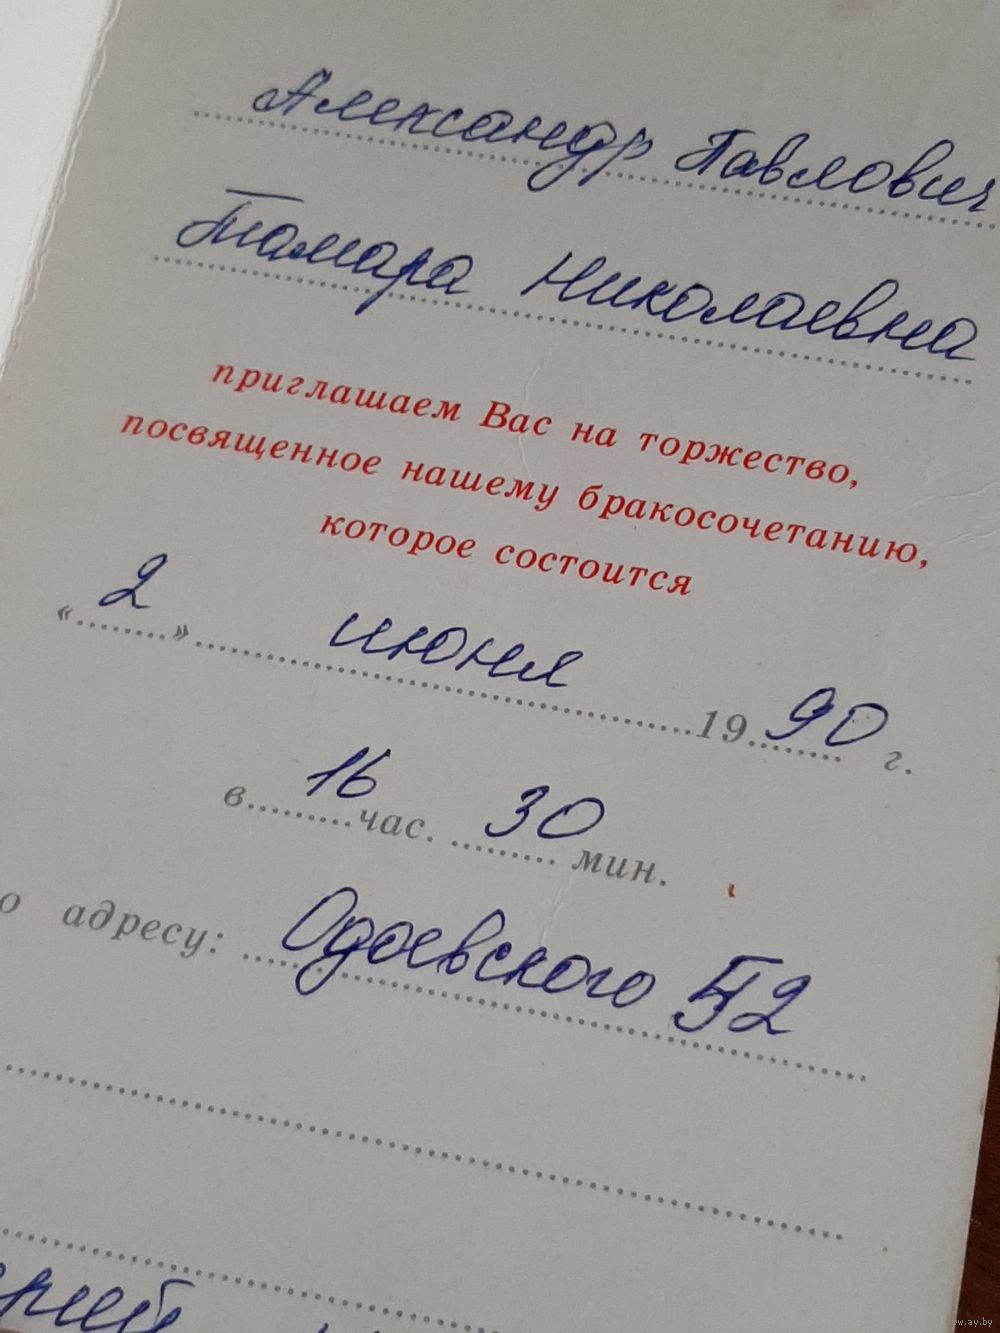 Александр Павлович
Тамара Николаевна
приглашаем Вас на торжество,
посвященное нашему бракосочетанию,
которое состоится
«2» июня 1990 г.
в 16 час. 30 мин.
о адресу: Одоевского 52
www.ay.by